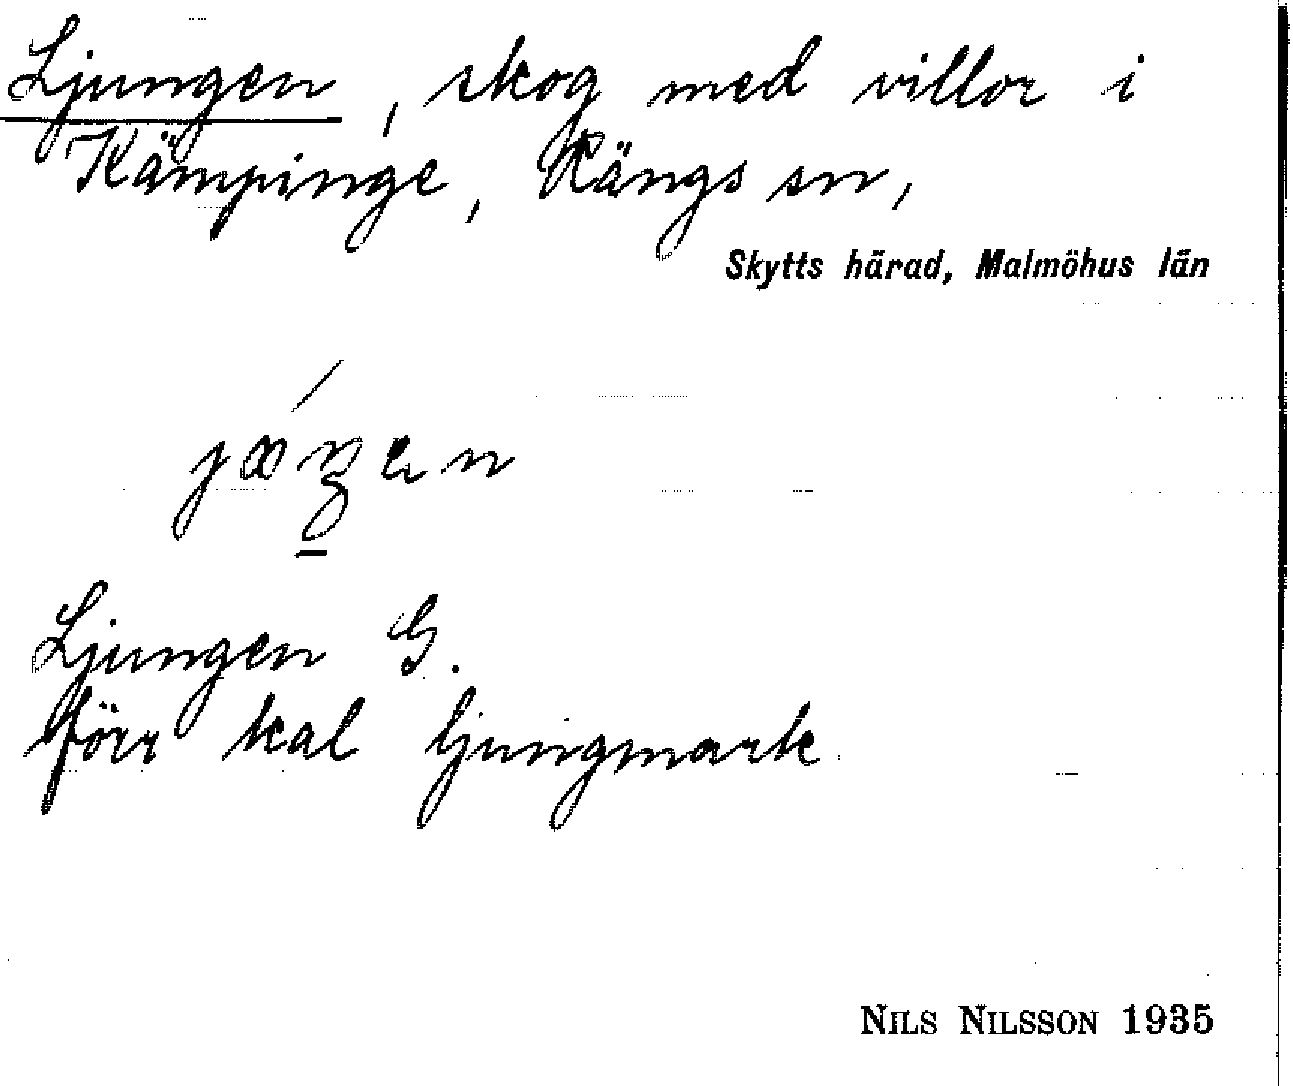 Ljungen, skog med villor i
Kämpinge, Rängs sn,
Skytts härad, Malmöhus län
Ljungen G.
förr kal ljungmark
NILS NILSSON 1935